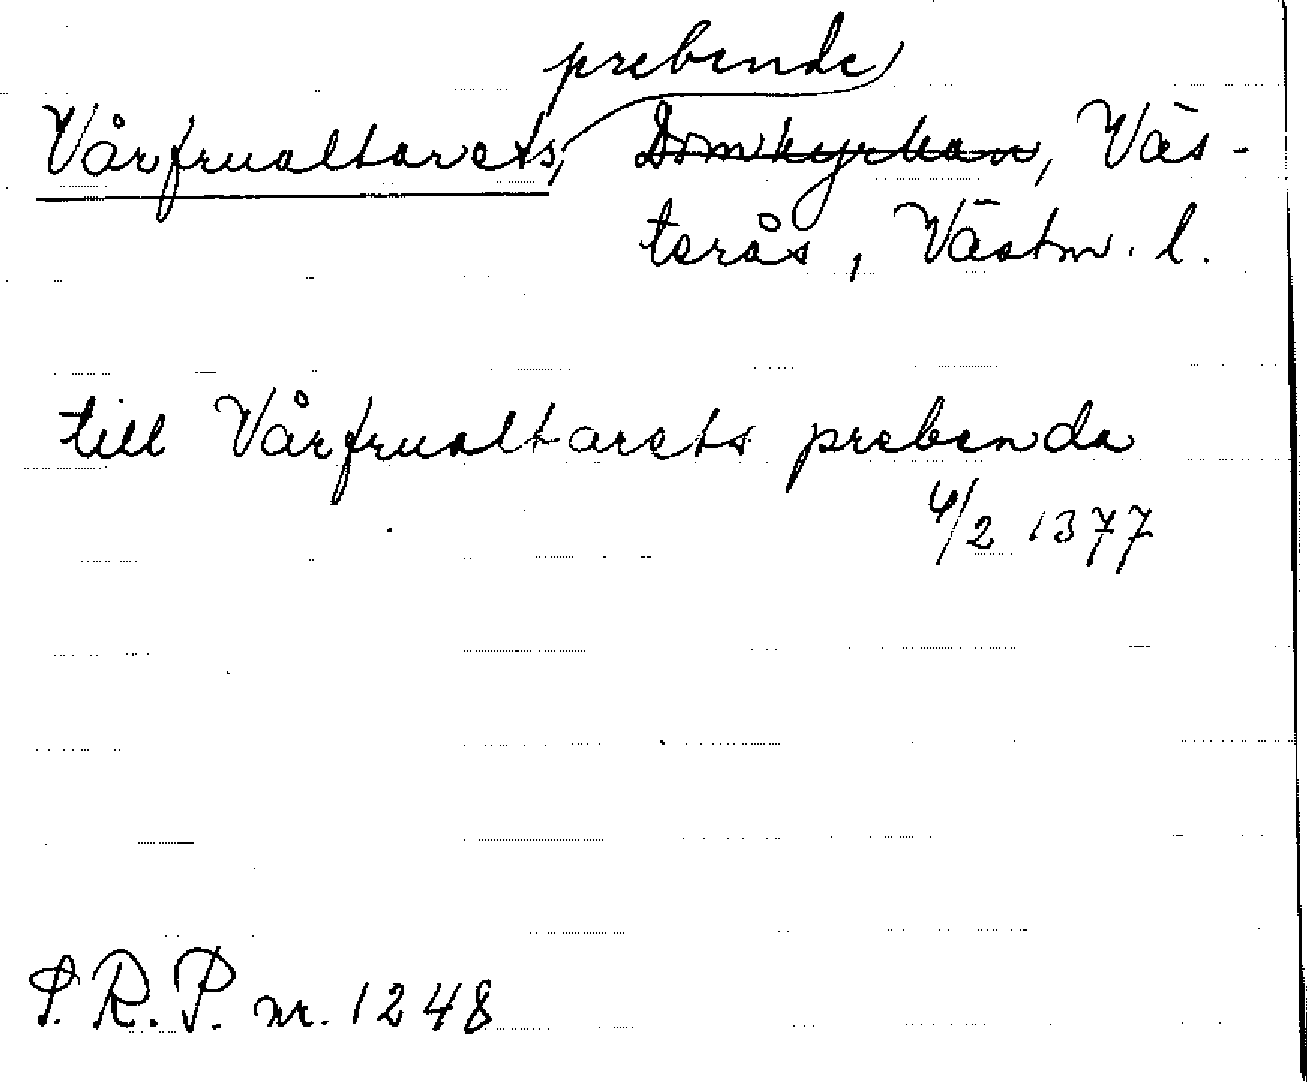 prebende
Vårfrualtarets, Domkyrkan, Väs-
terås, Västm. l.
till Vårfrualtarets prebenda
4/2 1377
S.R.P. nr. 1248